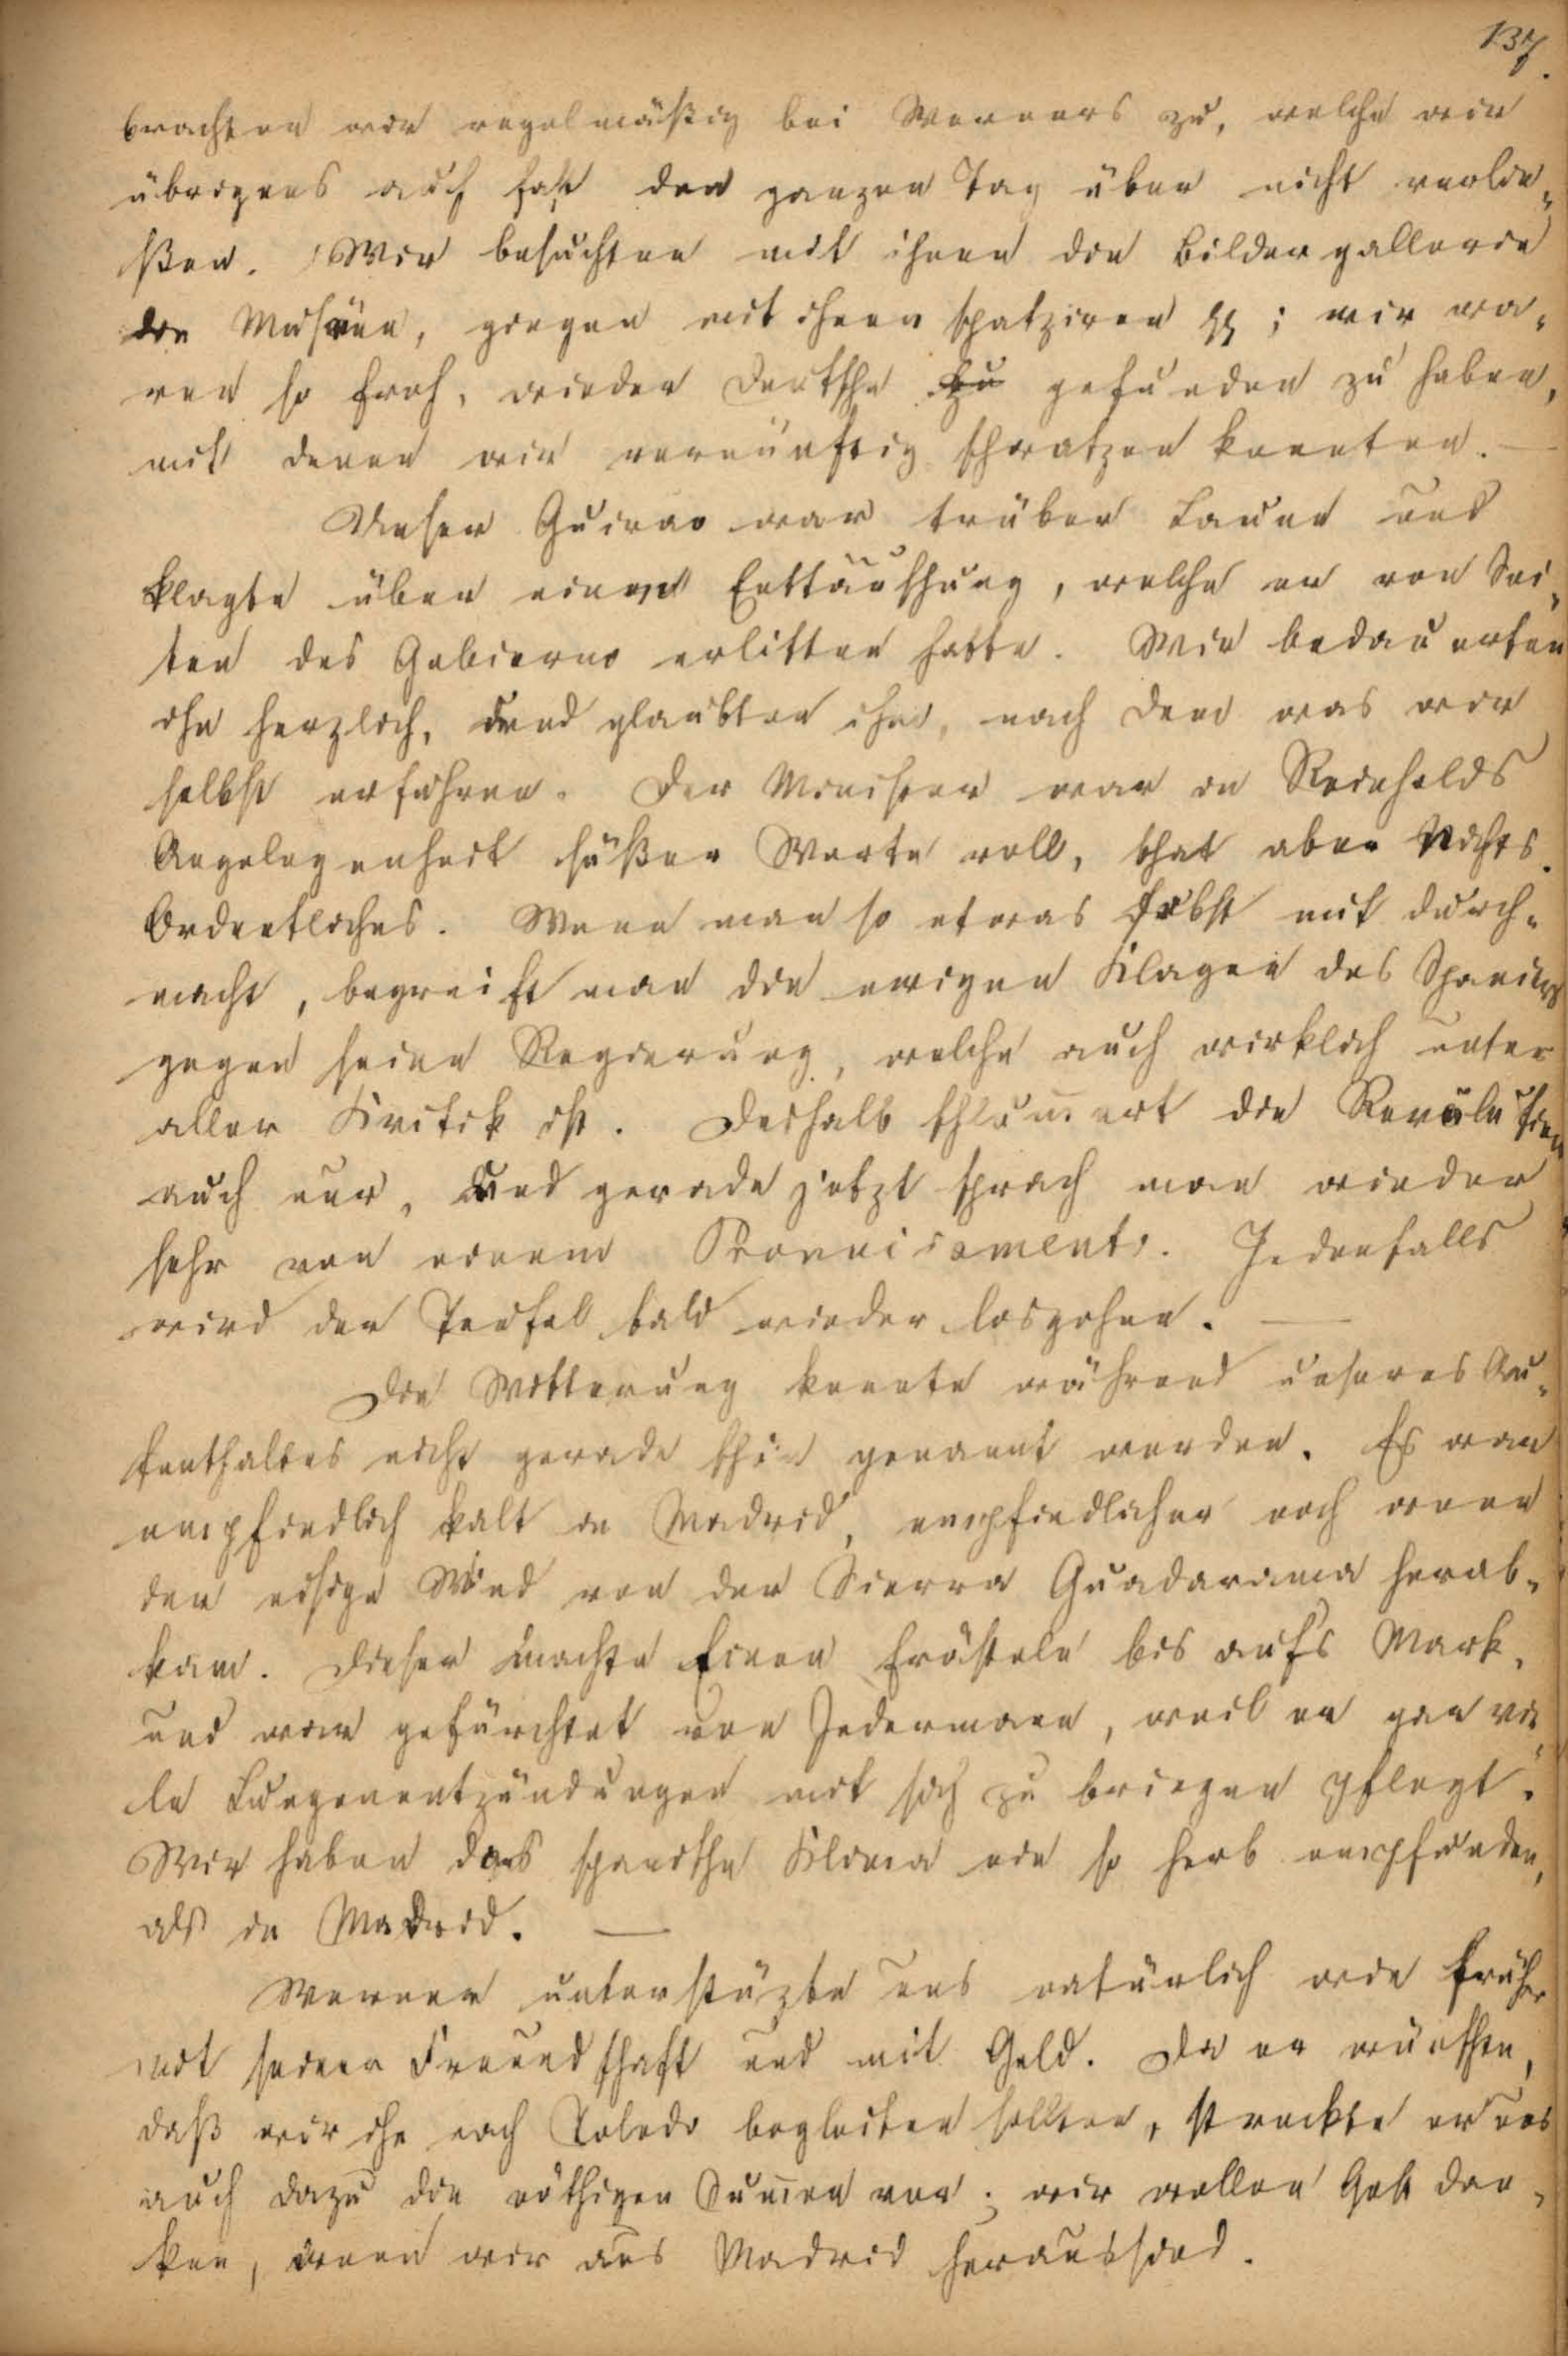 137.
brachten wir regelmäßig bei Werners zu, welche wir
übrigens auch fast den ganzen Tag über nicht verlie-
ßen. Wir besuchten mit ihnen die Bildergallerie
die Museen, giengen mit ihnen spatziren pp; wir wa-
ren so froh, wieder Deutsche zu gefunden zu haben,
mit denen wir vernünftig schwatzen konnten. —
Unser Guirao war trüber Laune und
klagte über eine Enttäuschung, welche er von Sei-
ten des Gobierno erlitten hatte. Wir bedauerten
ihn herzlich, und glaubten ihm, nach dem was wir
selbst erfuhren. Der Minister war in Reinholds
Angelegenheit süßer Worte voll, that aber Nichts
Ordentliches. Wenn man so etwas selbst mit durch-
macht, begreift man die ewigen Klagen des Spaniers
gegen seine Regierung, welche auch wirklich unter
aller Kritik ist. Deshalb schlum̄ert die Revolution
auch nur, und gerade jetzt sprach man wieder
sehr von einem Pronuciamento. Jedenfalls
wird der Teufel bald wieder losgehen. —
Die Witterung konnte während unseres Au-
fenthaltes nicht gerade schön genannt werden. Es war
empfindlich kalt in Madrid, empfindlicher noch wenn
der eisige Wind von der Sierra Guadarama herab-
kam. Dieser machte Einen frösteln bis aufs Mark,
und war gefürchtet von Jedermann, weil er gar vie-
le Lungenentzündungen mit sich zu bringen pflegt.
Wir haben das spanische Klima nie so herb empfunden,
als in Madrid. —
Werner unterstüzte uns natürlich wie früher
mit seiner Freundschaft und mit Geld. Da er wünschte,
daß wir ihn nach Toledo begleiten sollten, streckte er uns
auch dazu die nöthigen Sum̄en vor; wir wollen Gott dan-
ken, wenn wir aus Madrid heraussind.